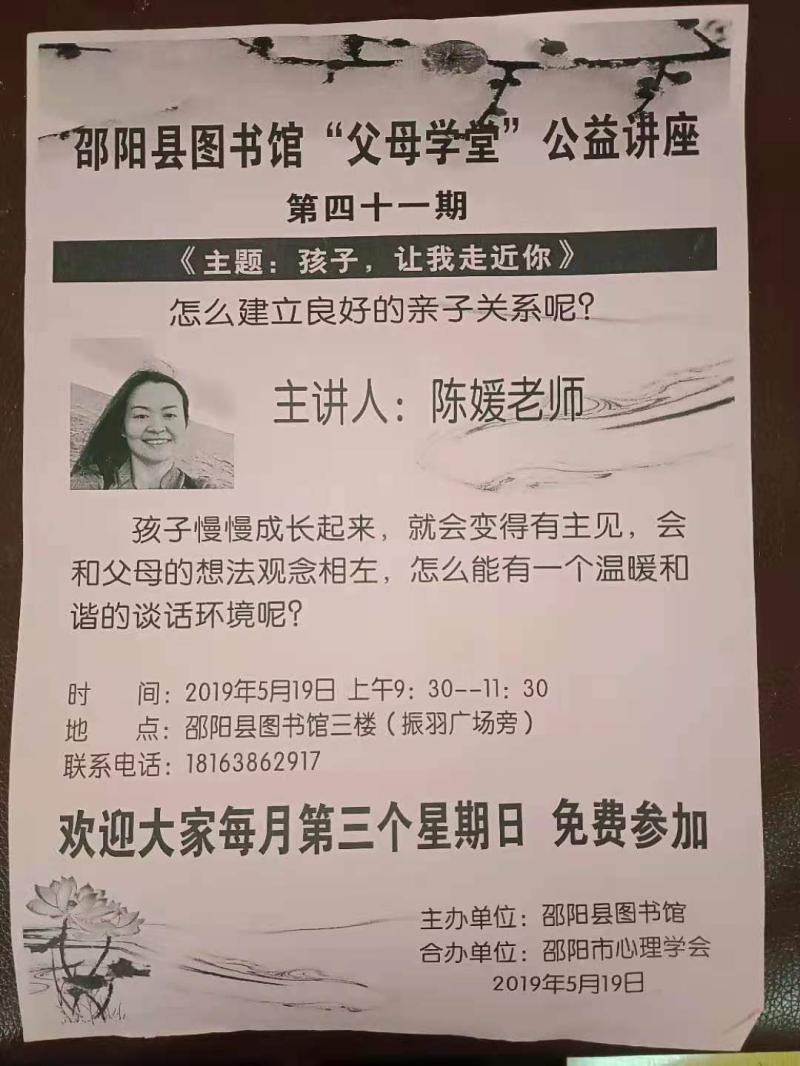 邵阳县图书馆“父母学堂”公益讲座
第四十一期
《主题：孩子，让我走近你》
怎么建立良好的亲子关系呢？
主讲人：陈媛老师
孩子慢慢成长起来，就会变得有主见，会
和父母的想法观念相左，怎么能有一个温暖和
谐的谈话环境呢？
时　　间：2019年5月19日 上午9：30--11：30
地　　点：邵阳县图书馆三楼（振羽广场旁）
联系电话：18163862917
欢迎大家每月第三个星期日 免费参加
主办单位：邵阳县图书馆
合办单位：邵阳市心理学会
2019年5月19日